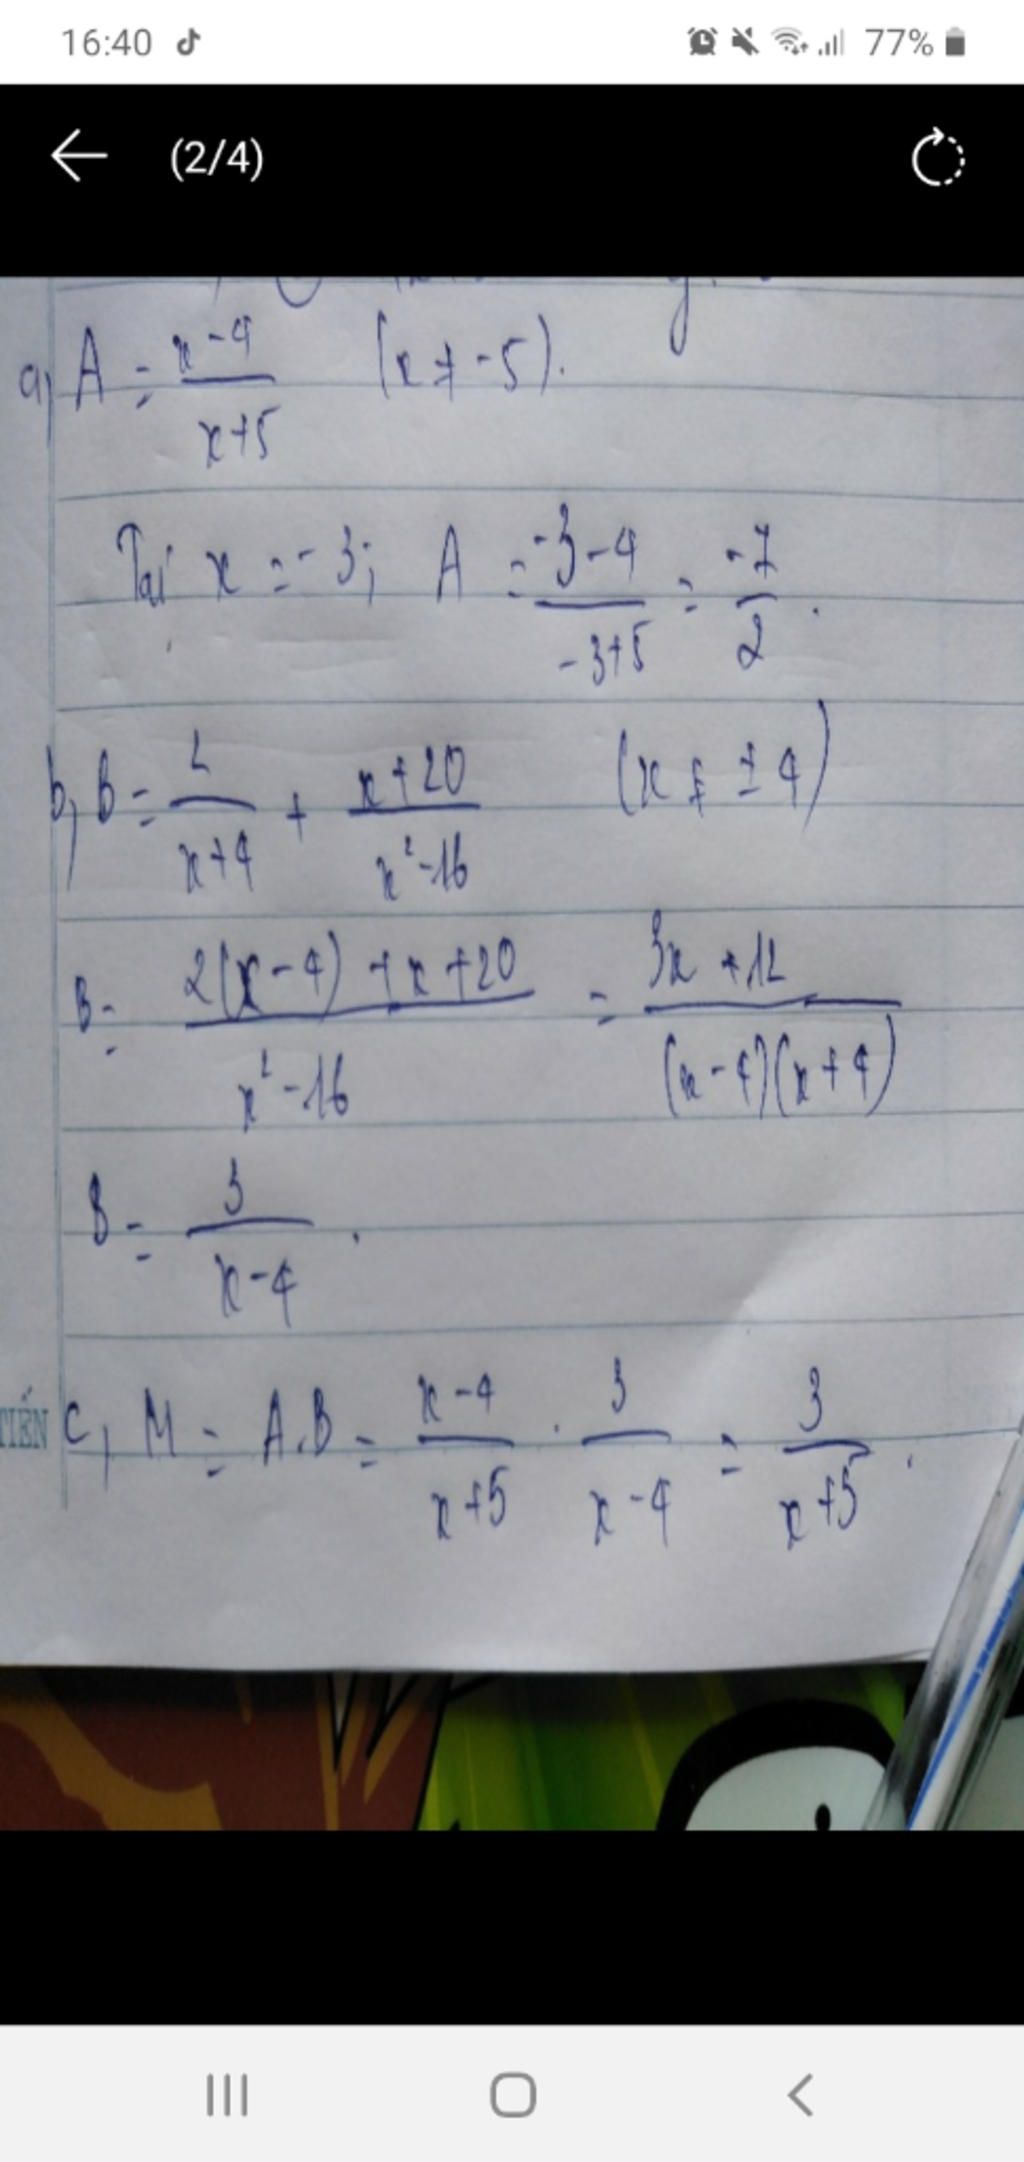 16:40 77%
(2/4)
a, A = x-4/x+5 (x ≠ -5).
Tại x = -3; A = -3-4/-3+5 = -7/2.
b, B = 2/x+4 + x+20/x²-16 (x ≠ ±4)
B = 2(x-4)+x+20/x²-16 = 3x+12/(x-4)(x+4)
B = 3/x-4.
TIẾN
c, M = A.B = x-4/x+5 . 3/x-4 = 3/x+5.